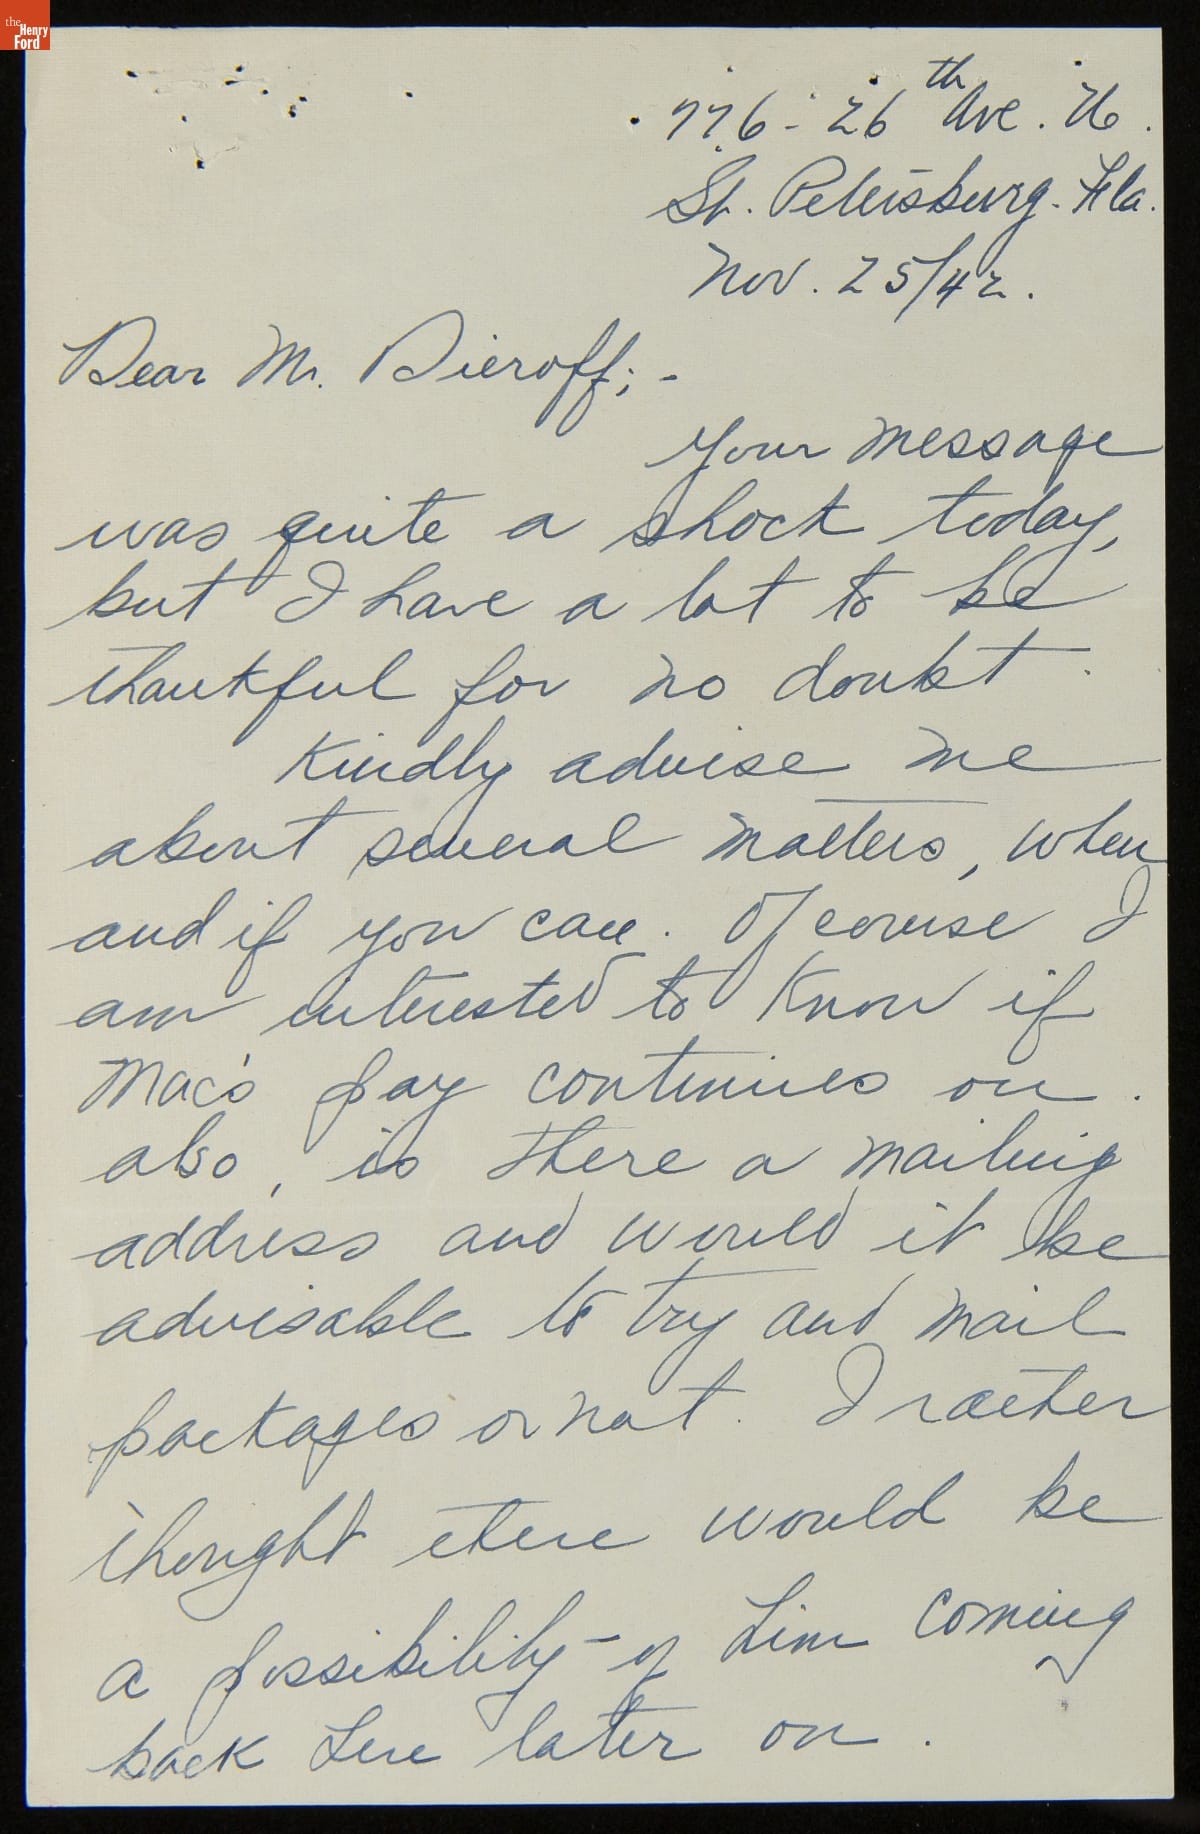 the
Henry
Ford
776 - 26th Ave. No.
St. Petersburg. Fla.
Nov. 25/42.
Dear Mr. Dieroff; -
Your message
was quite a shock today,
but I have a lot to be
thankful for no doubt.
Kindly advise me
about several matters, when
and if you can. Of course I
am interested to know if
Mac's pay continues on.
also, is there a mailing
address and would it be
advisable to try and mail
packages or not. I raether
thought there would be
a possibility - of him coming
back here later on.